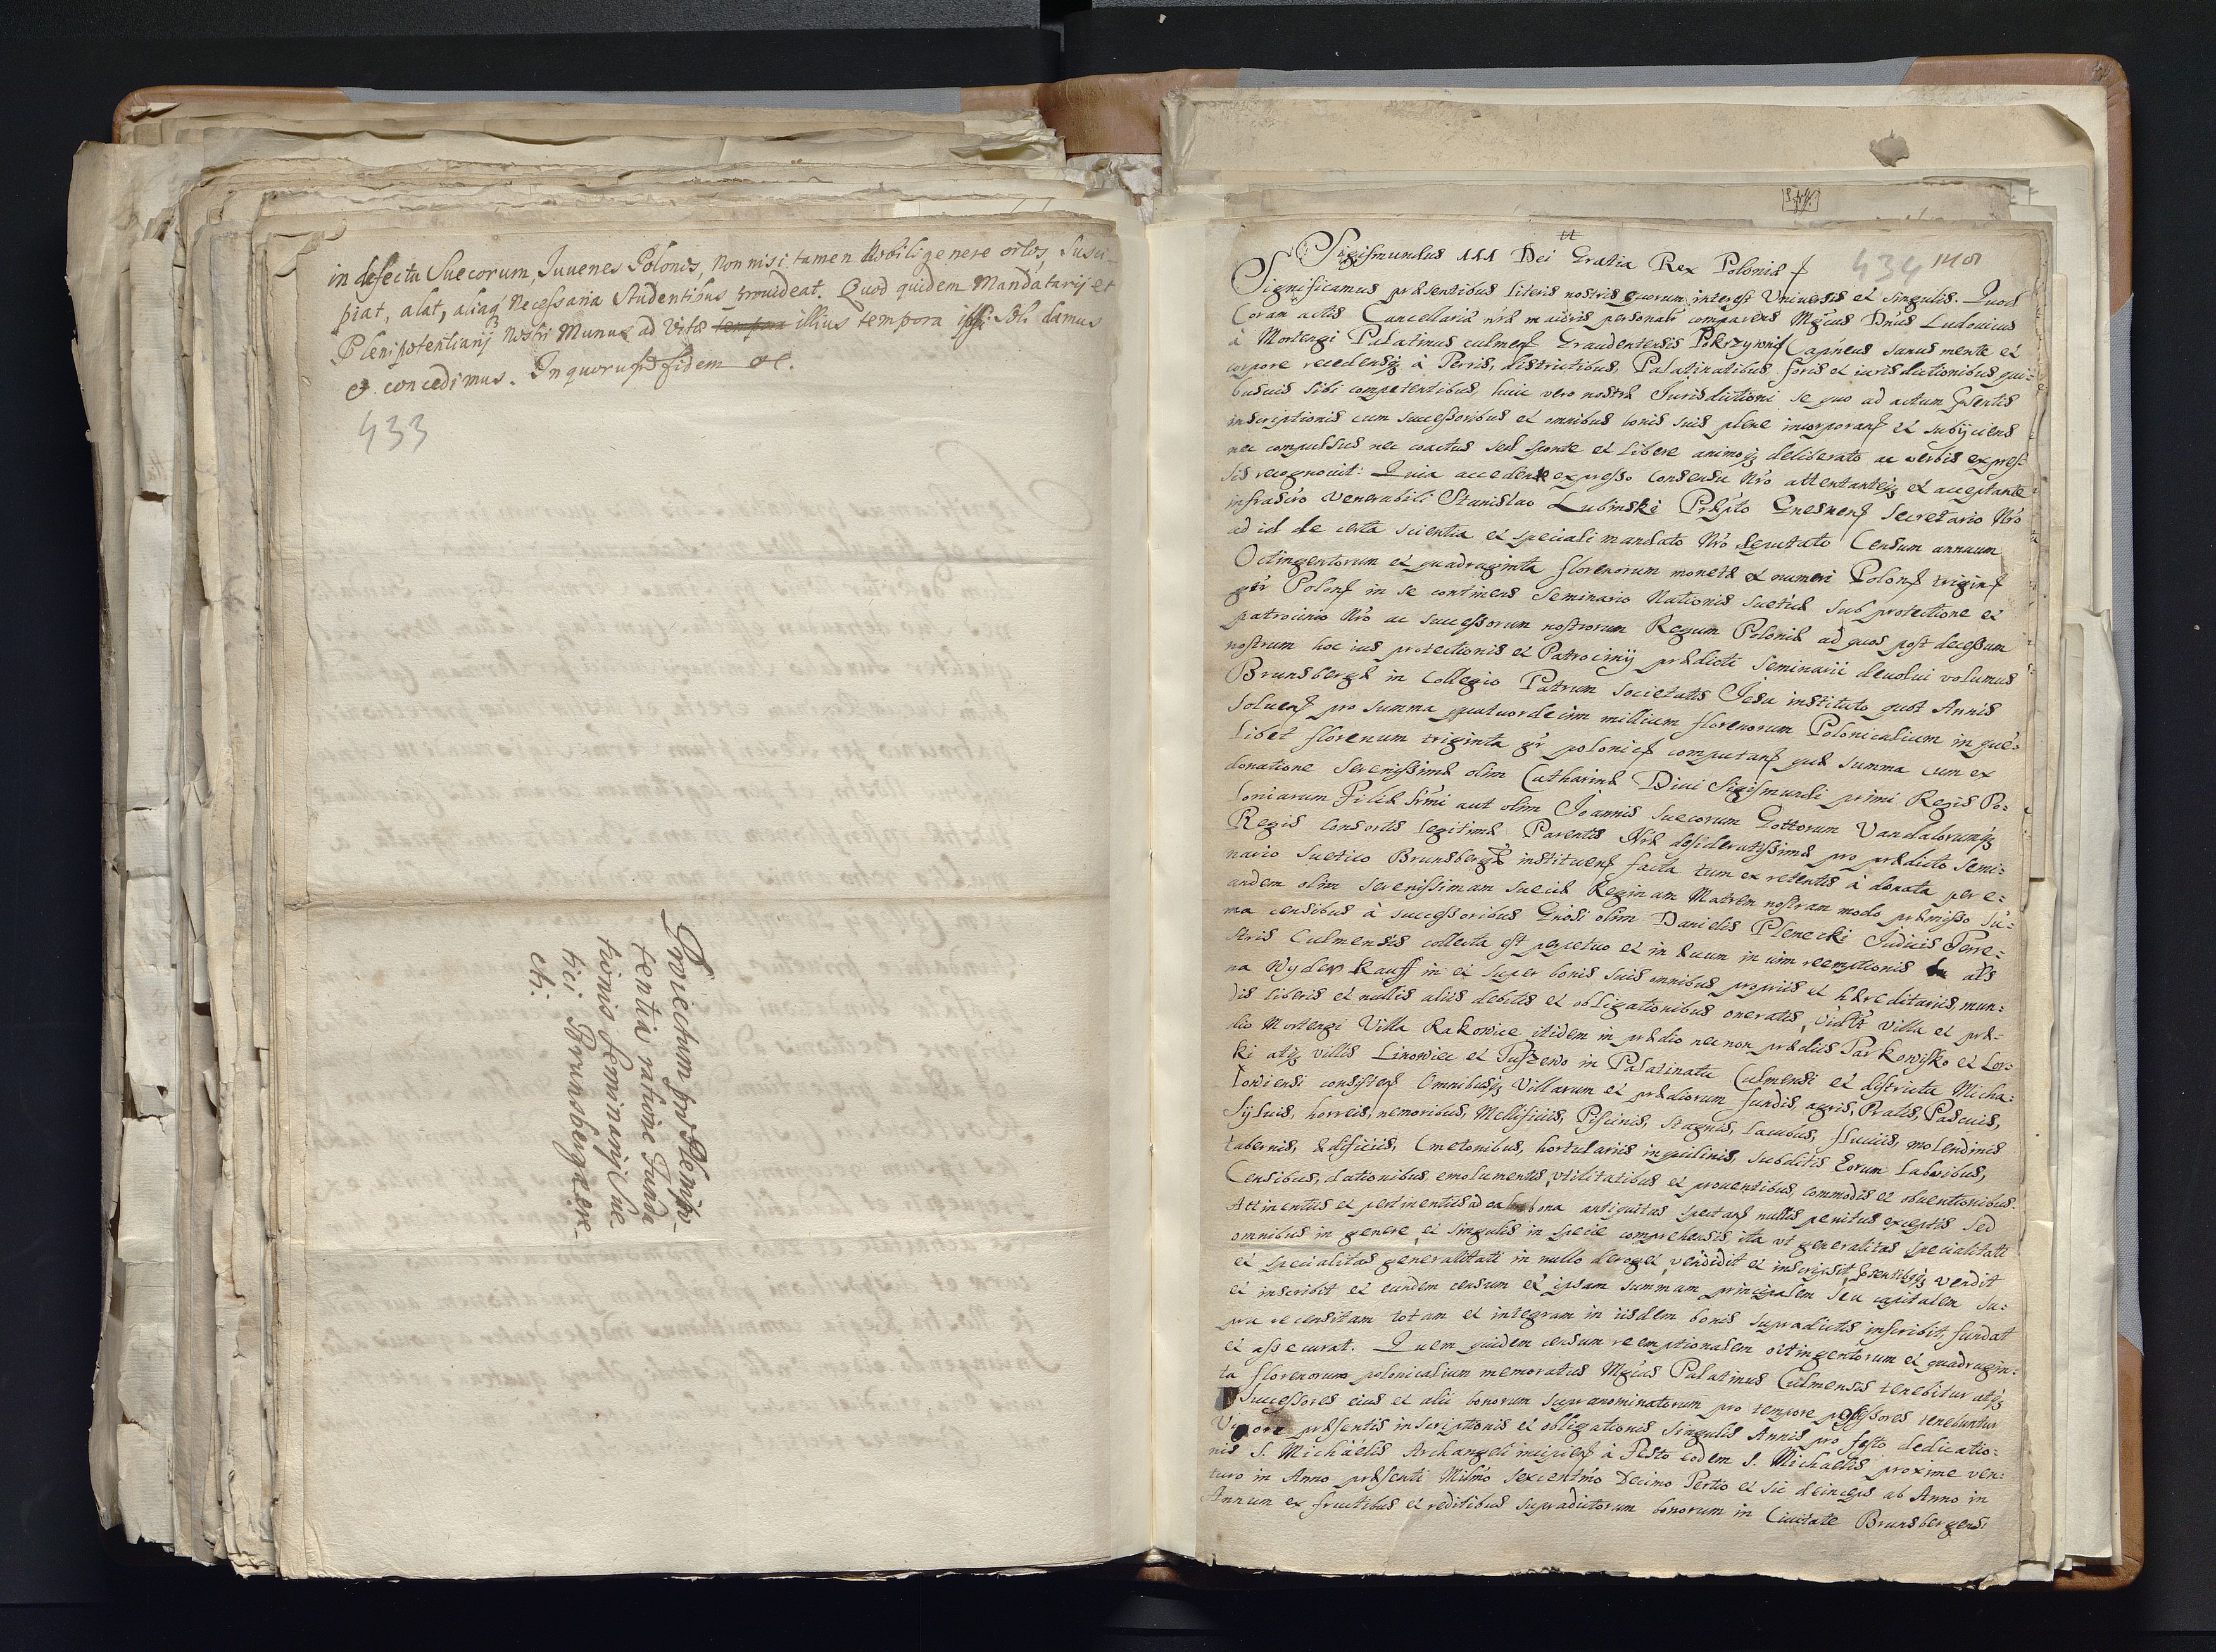 in defectu Suecorum, Juuenes Polonos, non nisi tamen Nobili genere ortos, susci-
piat, alat, aliaq necessaria studentibus prouideat. Quod quidem Mandatarij et
Plenipotentiarij nostri Munus ad vitæ tempora illius tempora ipsi soli damus
et concedimus. In quorum fidem etc.
433
Proiectum pro Plenipo-
tentia ratione funda
tionis Seminarij Sue
tici Brunsbergæ ere-
cti.
Sigismundus III Dei Gratia Rex Poloniæ
434
Significamus præsentibus literis nostris quorum interest Uniuersis et singulis. Quod
Coram actis Cancellariæ nræ maioris personalr comparens Mgcus Dnus Ludouicus
à Mortengi Palatinus culmens Graudentensis Pokrzywnens Capneus sanus mente et
corpore recedensq à Terris, districtibus, Palatinatibus foris et iurisdictionibus qui-
busuis sibi competentibus, huic vero nostræ Jurisdictioni se quo ad actum psentis
inscriptionis cum successoribus et omnibus bonis suis plene incorporans et subijciens
nec compulsus nec coactus sed sponte et libere animoq deliberato ac verbis expres-
sis recognouit: Quia accedente expresso consensu Nro attentanteq et acceptante
infrascro Venerabili Stanislao Lubinski Præpto Gnesnens Secretario Nro
ad id de certa scientia et speciali mandato Nro deputato Censum annuum
Octingentorum et quadraginta florenorum monetæ et numeri Polon trigin
gr Polon in se continens Seminario Nationis Sueticæ sub protectione et
patrocinio Nro ac successorum nostrorum Regum Poloniæ ad quos post decessum
nostrum hoc ius protectionis et Patrocinij prædicti Seminarii deuolui volumus
Brunsbergæ in Collegio Patrum Societatis Jesu instituto quot Annis
soluens pro summa quatuordecim millium florenorum Polonicalium in que-
libet florenum triginta gr polonic computans quæ summa cum ex
donatione Serenissimæ olim Catharinæ Diui Sigismundi primi Regis Po-
loniarum Filiæ Srmi aut olim Joannis Suecorum Gottorum Vandalorumq
Regis Consortis legitimæ Parentis Nræ desideratissimæ pro prædicto Semi-
nario Suetico Brunsbergæ instituens facta tum ex retentis à donata per e-
andem olim Serenissimam Sueciæ Reginam Matrem nostram modo præmisso su-
ma censibus à successoribus Gnosi olim Danielis Plemecki Judicis Terre-
stris Culmensis collecta est perpetuo et in æuum in uim reemptionis als
na Wyderkauff in et super bonis suis omnibus propriis et hæreditariis, mun-
dis liberis et nullis aliis debitis et obligationibus oneratis, vidlt villa et præ-
dio Mortengi Villa Rakowice itidem in prædio necnon prædiis Tarkowisko et Lor-
ki atq villis Linowiec et Tuszewo in Palatinatu Culmensi et districtu Micha-
lowiensi consistens Omnibusq Villarum et prædiorum fundis, agris, Pratis, Pascuis,
Syluis, horreis, nemoribus, Mellificiis, Piscinis, stagnis, lacubus, fluuiis, molendinis
tabernis, ædificiis, Cmetonibus, hortulariis inquilinis, subditis eorum laboribus,
Censibus, dationibus, emolumentis, vtilitatibus et prouentibus, commodis et obuentionibus
Attinentiis et pertinentiis ad ea bona antiquitus spectans nullis penitus exceptis sed
omnibus in genere et singulis in specie comprehensis ita vt generalitas specialitati
et specialitas generalitati in nullo deroget vendidit et inscripsit, psentibusq vendit
et inscribit et eundem censum et ipsam summam principalem seu capitalem su-
pra recensitam totam et integram in iisdem bonis supradictis inscribit, fundat
et assecurat. Quem quidem censum reemptionalem octingentorum et quadragin-
ta florenorum polonicalium memoratus Mgcus Palatinus Culmensis tenebitur atq
Successores eius et alii bonorum supranominatorum pro tempore possessores tenebuntur
Vigore præsentis inscriptionis et obligationis singulis Annis pro festo dedicatio-
nis S. Michaelis Archangeli incipiens à Festo eodem S. Michaelis proxime ven-
turo in Anno præsenti Milmo sexcentmo Decimo Tertio et sic deinceps ab Anno in
Annum ex fructibus et reditibus supradictorum bonorum in Ciuitate Brunsbergensi